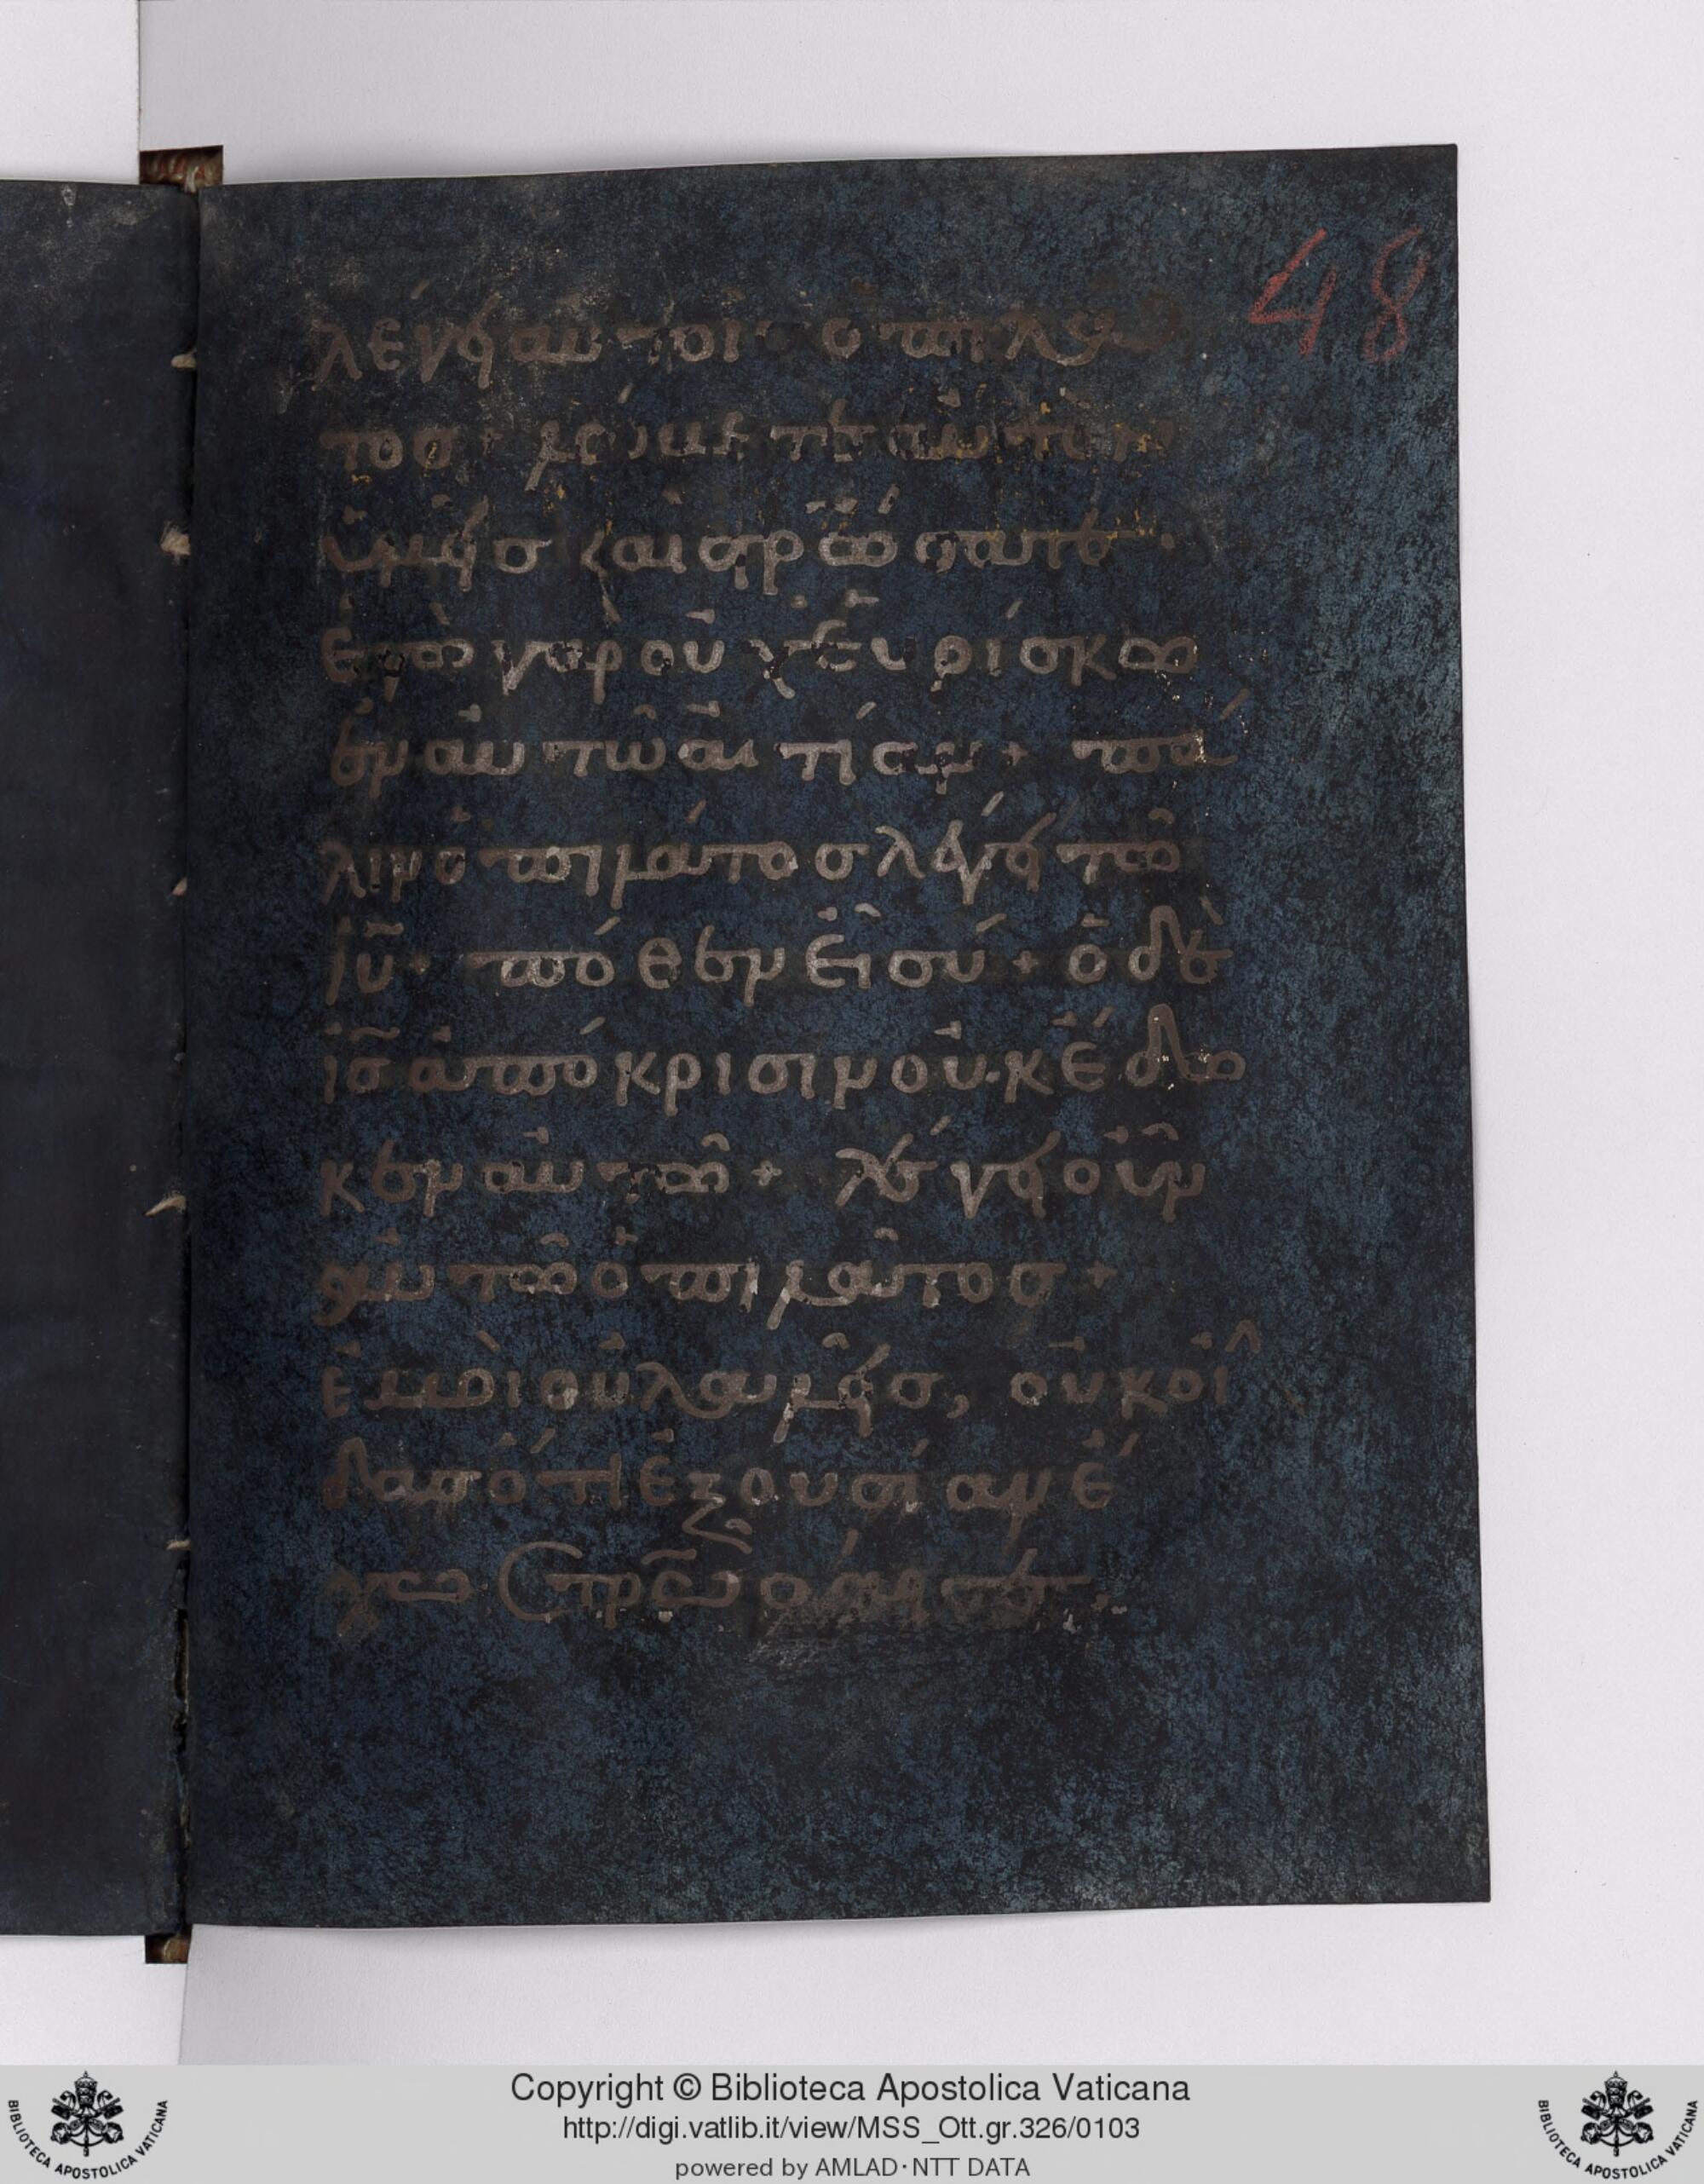 48
λέγει αυτοῖς ὁ πιλᾶ
τος· λάβετε αὐτὸν
ὑμεῖς καὶ σ̅ρ̅ώσατε·
ἐγὼ γὰρ οὐχ εὑρίσκω
ἐν αὐτῶ αἰτίαν + πά
λιν ὁ πιλάτος λέγει τῶ
ι̅υ̅· πόθεν εἶ σύ + ὁ δὲ
ι̅σ̅ ἀπόκρισιν οὐκ ἔδω
κεν αὐτῶ + λέγει οὖν
αὐτῶ ὁ πιλᾶτος +
ἐμοὶ οὐ λαλεῖς, οὐκ οἶ
δας ὅτι ἐξουσίαν ἔ
χω σ̅ρ̅ῶσαί σε
Copyright © Biblioteca Apostolica Vaticana
http://digi.vatlib.it/view/MSS_Ott.gr.326/0103
powered by AMLAD·NTT DATA
BIBLIOTECA APOSTOLICA VATICANA
BIBLIOTECA APOSTOLICA VATICANA